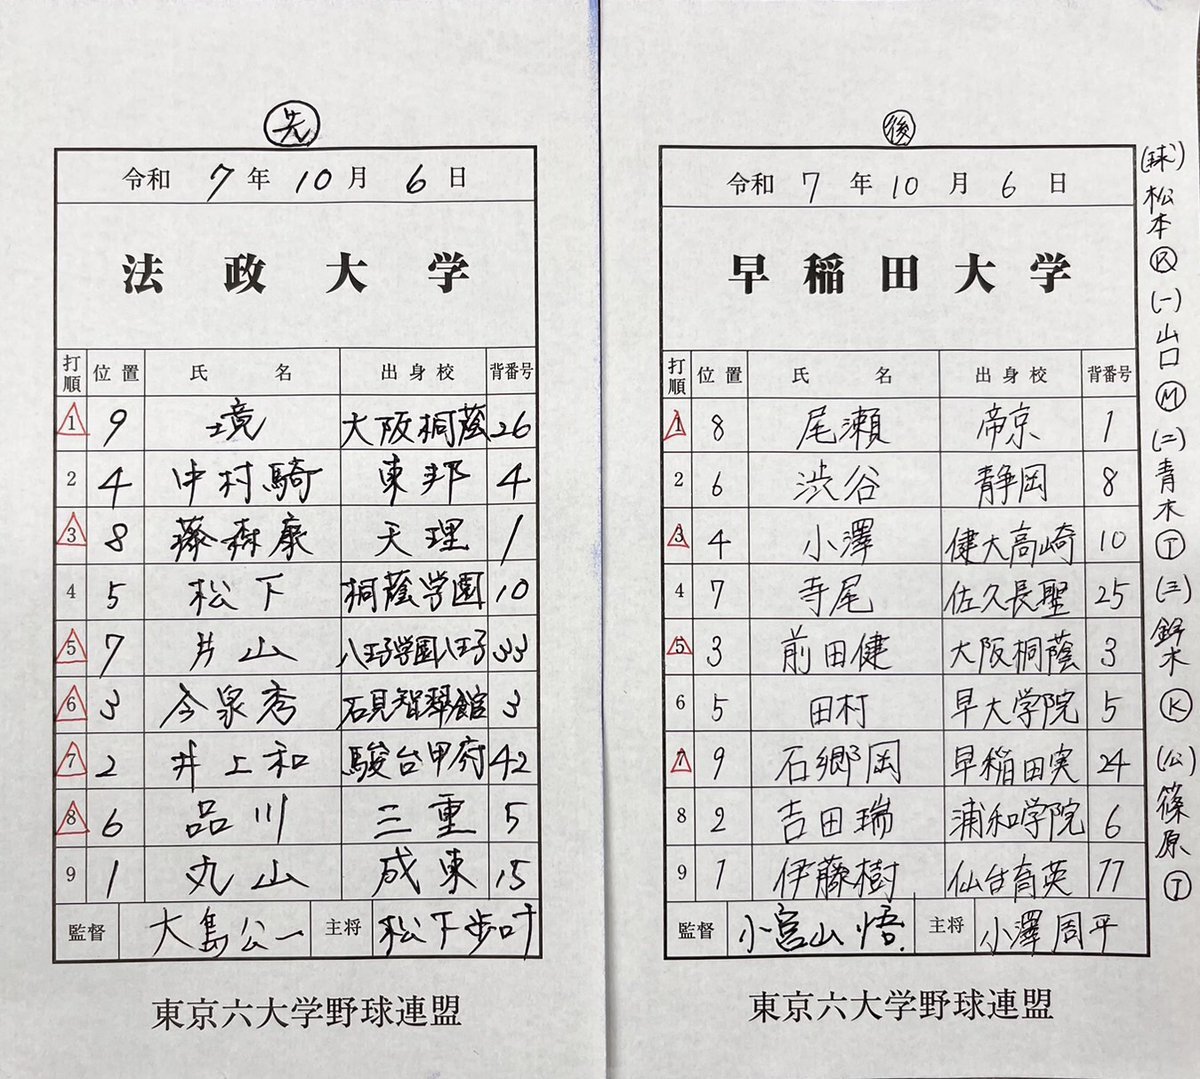 先
令和 7 年 10 月 6 日
法政大学
打順 位置 氏名 出身校 背番号
1 9 境 大阪桐蔭 26
2 4 中村騎 東邦 4
3 8 藤森康 天理 1
4 5 松下 桐蔭学園 10
5 7 片山 八王子学園八王子 33
6 3 今泉秀 石見智翠館 3
7 2 井上和 駿台甲府 42
8 6 品川 三重 5
9 1 丸山 成東 15
監督 大島公一 主将 松下歩叶
東京六大学野球連盟
後
令和 7 年 10 月 6 日
早稲田大学
打順 位置 氏名 出身校 背番号
1 8 尾瀬 帝京 1
2 6 渋谷 静岡 8
3 4 小澤 健大高崎 10
4 7 寺尾 佐久長聖 25
5 3 前田健 大阪桐蔭 3
6 5 田村 早大学院 5
7 9 石郷岡 早稲田実 24
8 2 吉田瑞 浦和学院 6
9 1 伊藤樹 仙台育英 11
監督 小宮山悟 主将 小澤周平
東京六大学野球連盟
(球)松本Ⓡ (一)山口Ⓜ (二)青木Ⓣ (三)鈴木Ⓚ (公)篠原Ⓣ